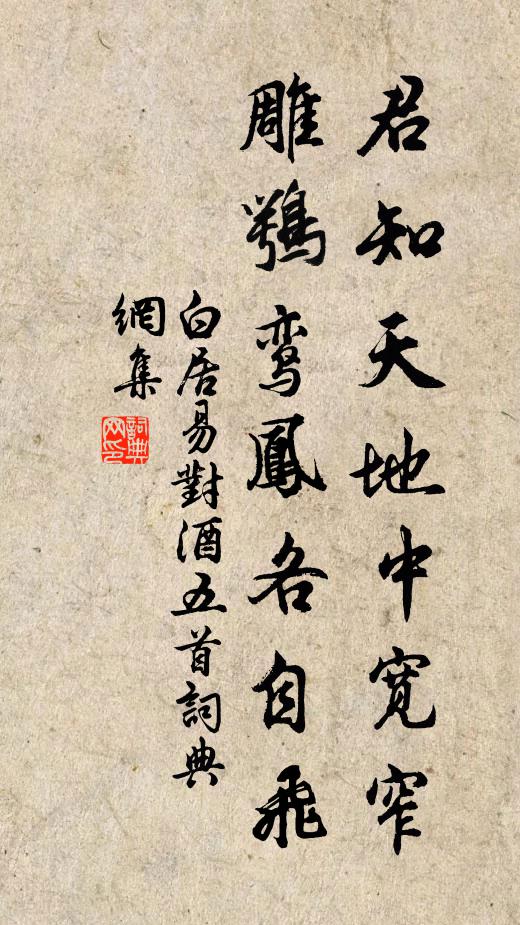 君知天地中寬窄
雕鶚鸾鳳各自飛
白居易對酒五首詞典
網集
詞典
网印